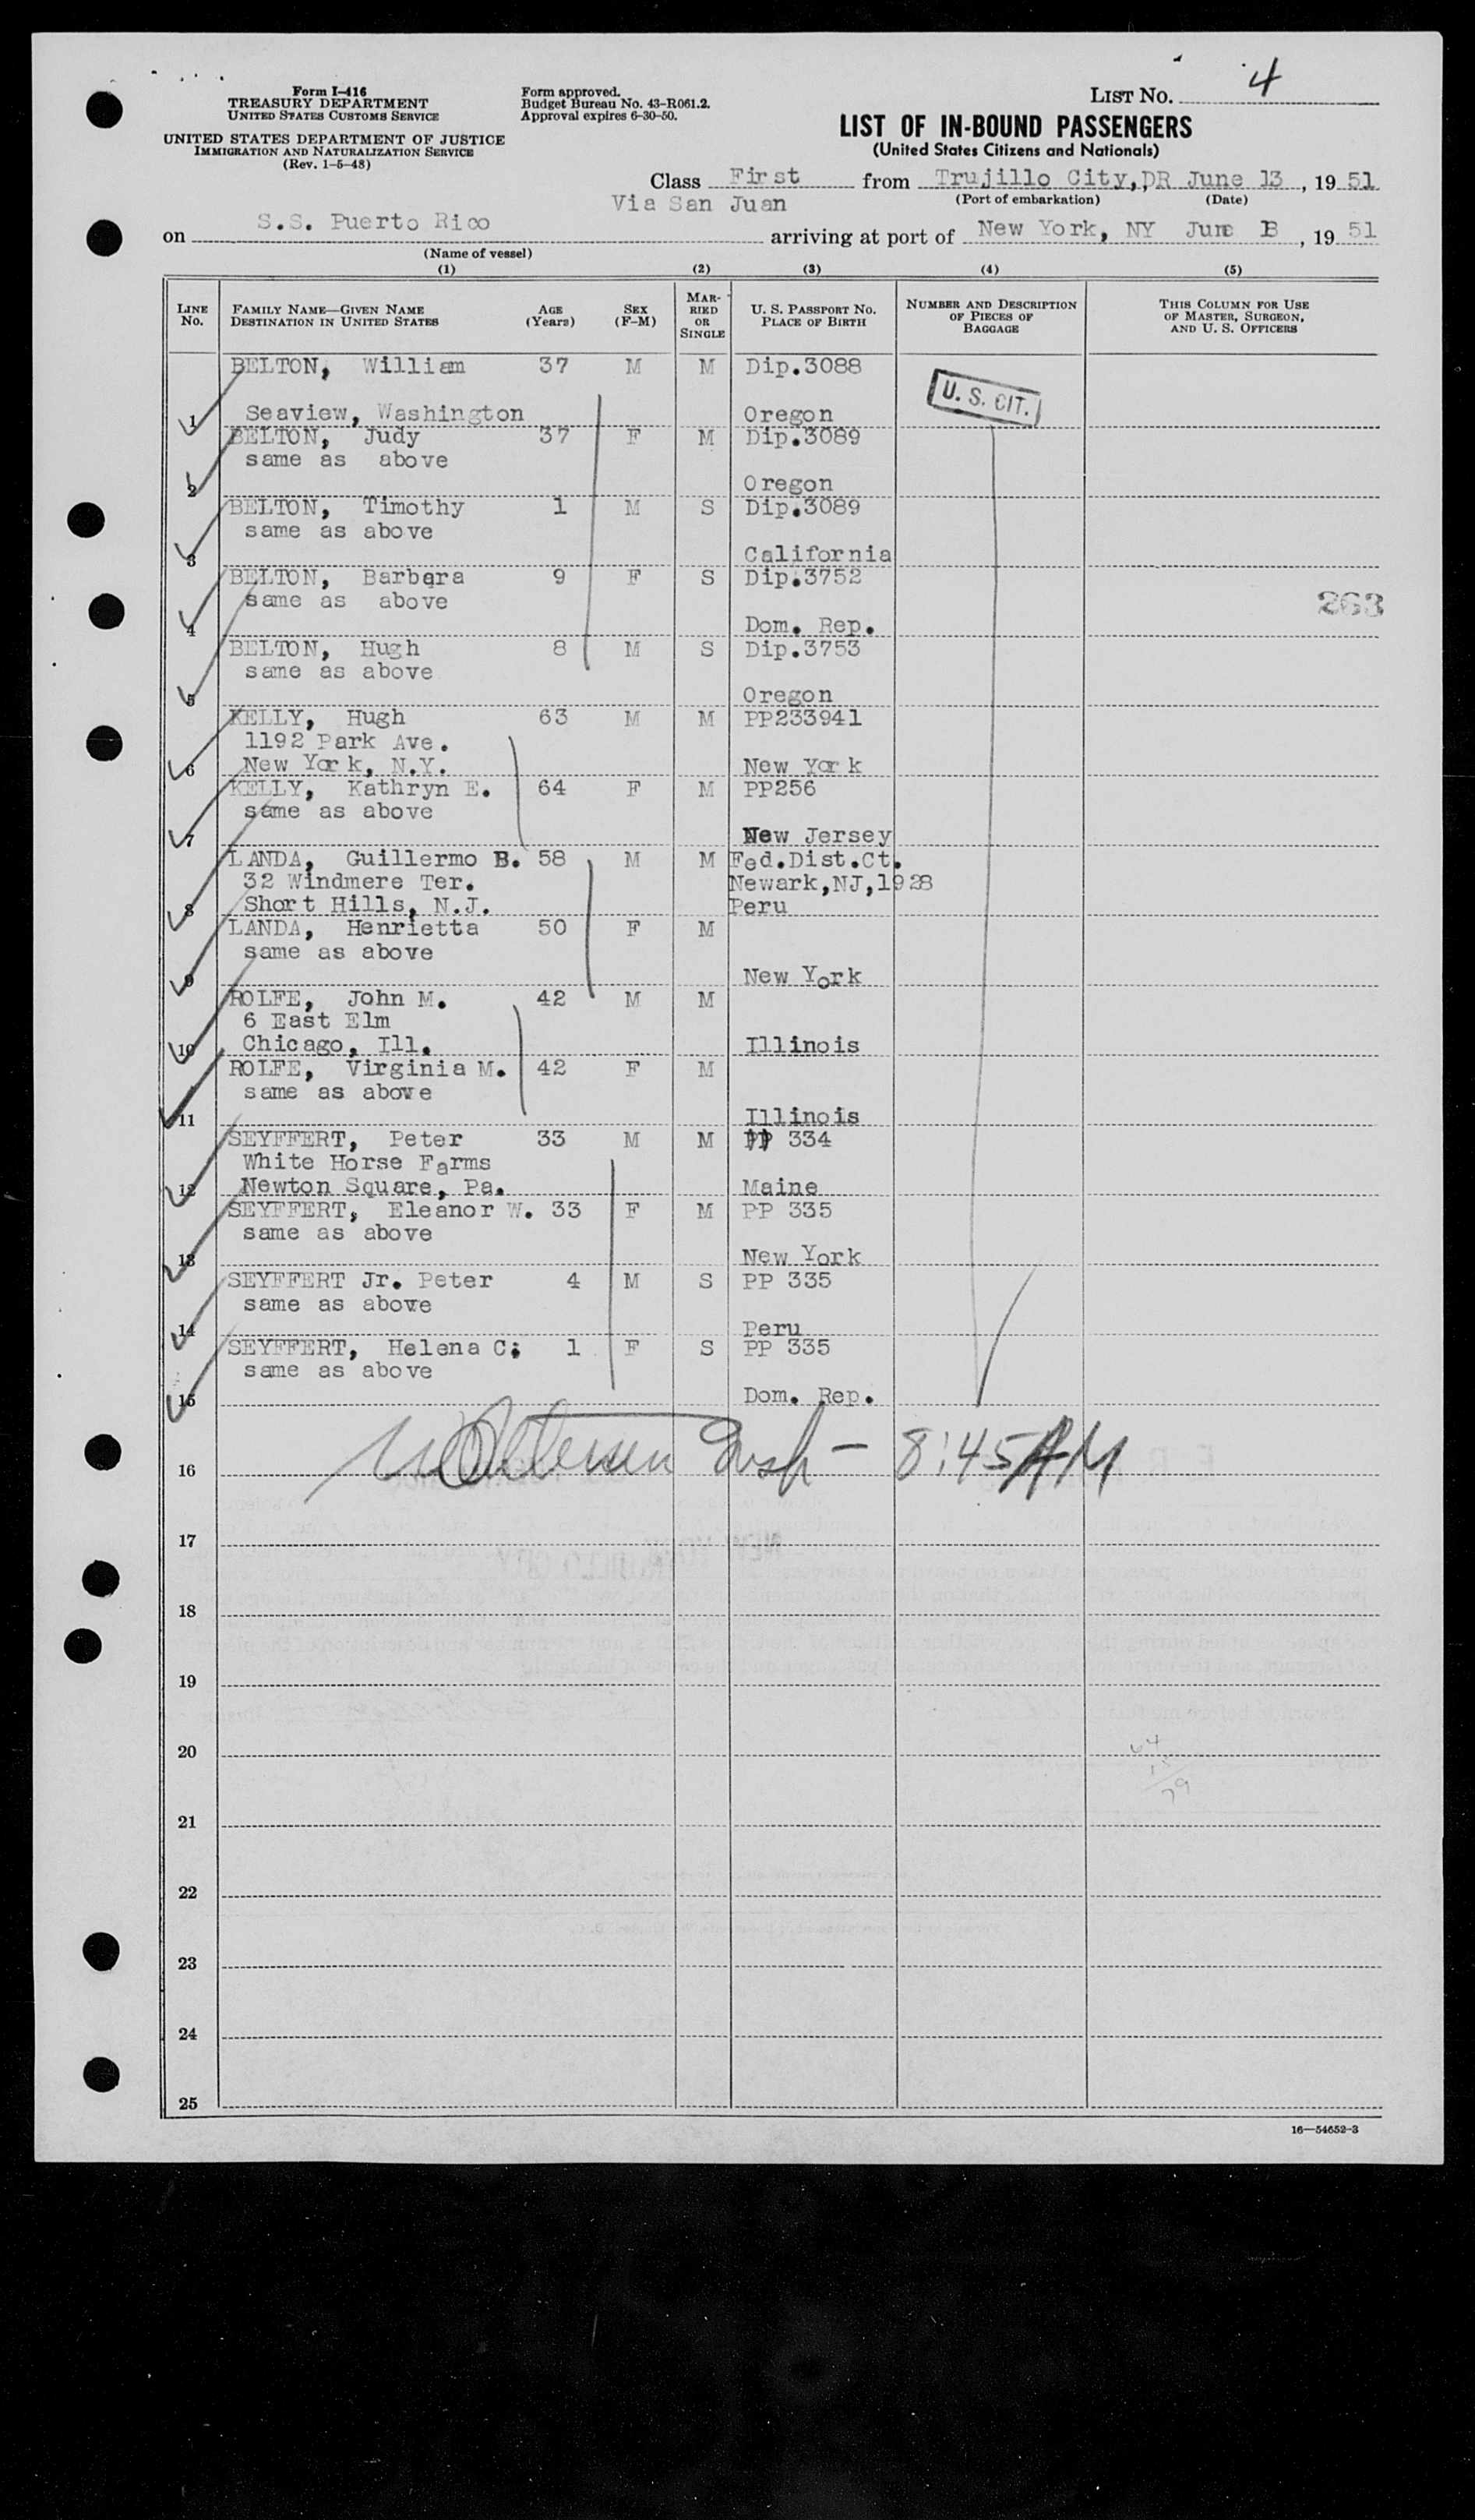 4
Form I-416
TREASURY DEPARTMENT
UNITED STATES CUSTOMS SERVICE
UNITED STATES DEPARTMENT OF JUSTICE
IMMIGRATION AND NATURALIZATION SERVICE
(Rev. 1-5-48)
Form approved.
Budget Bureau No. 43-R061.2.
Approval expires 6-30-50.
LIST NO.
LIST OF IN-BOUND PASSENGERS
(United States Citizens and Nationals)
Class First from Trujillo City, DR June 13, 1951
Via San Juan (Port of embarkation) (Date)
on S.S. Puerto Rico arriving at port of New York, NY June , 1951
(Name of vessel)
(1) (2) (3) (4) (5)
LINE No. FAMILY NAME—GIVEN NAME DESTINATION IN UNITED STATES AGE (Years) SEX (F-M) MARRIED OR SINGLE U. S. PASSPORT NO. PLACE OF BIRTH NUMBER AND DESCRIPTION OF PIECES OF BAGGAGE THIS COLUMN FOR USE OF MASTER, SURGEON, AND U. S. OFFICERS
BELTON, William 37 M M Dip.3088
U. S. CIT.
1 Seaview, Washington Oregon
BELTON, Judy 37 F M Dip.3089
same as above
2 Oregon
BELTON, Timothy 1 M S Dip.3089
same as above
3 California
BELTON, Barbara 9 F S Dip.3752
same as above 263
4 Dom. Rep.
BELTON, Hugh 8 M S Dip.3753
same as above
5 Oregon
KELLY, Hugh 63 M M PP233941
1192 Park Ave.
6 New York, N.Y. New York
KELLY, Kathryn E. 64 F M PP256
same as above
7 New Jersey
LANDA, Guillermo B. 58 M M Fed.Dist.Ct.
32 Windmere Ter. Newark,NJ,1928
8 Short Hills, N.J. Peru
LANDA, Henrietta 50 F M
same as above
9 New York
ROLFE, John M. 42 M M
6 East Elm
10 Chicago, Ill. Illinois
ROLFE, Virginia M. 42 F M
same as above
11 Illinois
SEYFFERT, Peter 33 M M PP 334
White Horse Farms
12 Newton Square, Pa. Maine
SEYFFERT, Eleanor W. 33 F M PP 335
same as above
13 New York
SEYFFERT Jr. Peter 4 M S PP 335
same as above
14 Peru
SEYFFERT, Helena C; 1 F S PP 335
same as above
15 Dom. Rep.
— 8:45 AM
16
17
18
19
20
64
15
79
21
22
23
24
25
16—54652-3